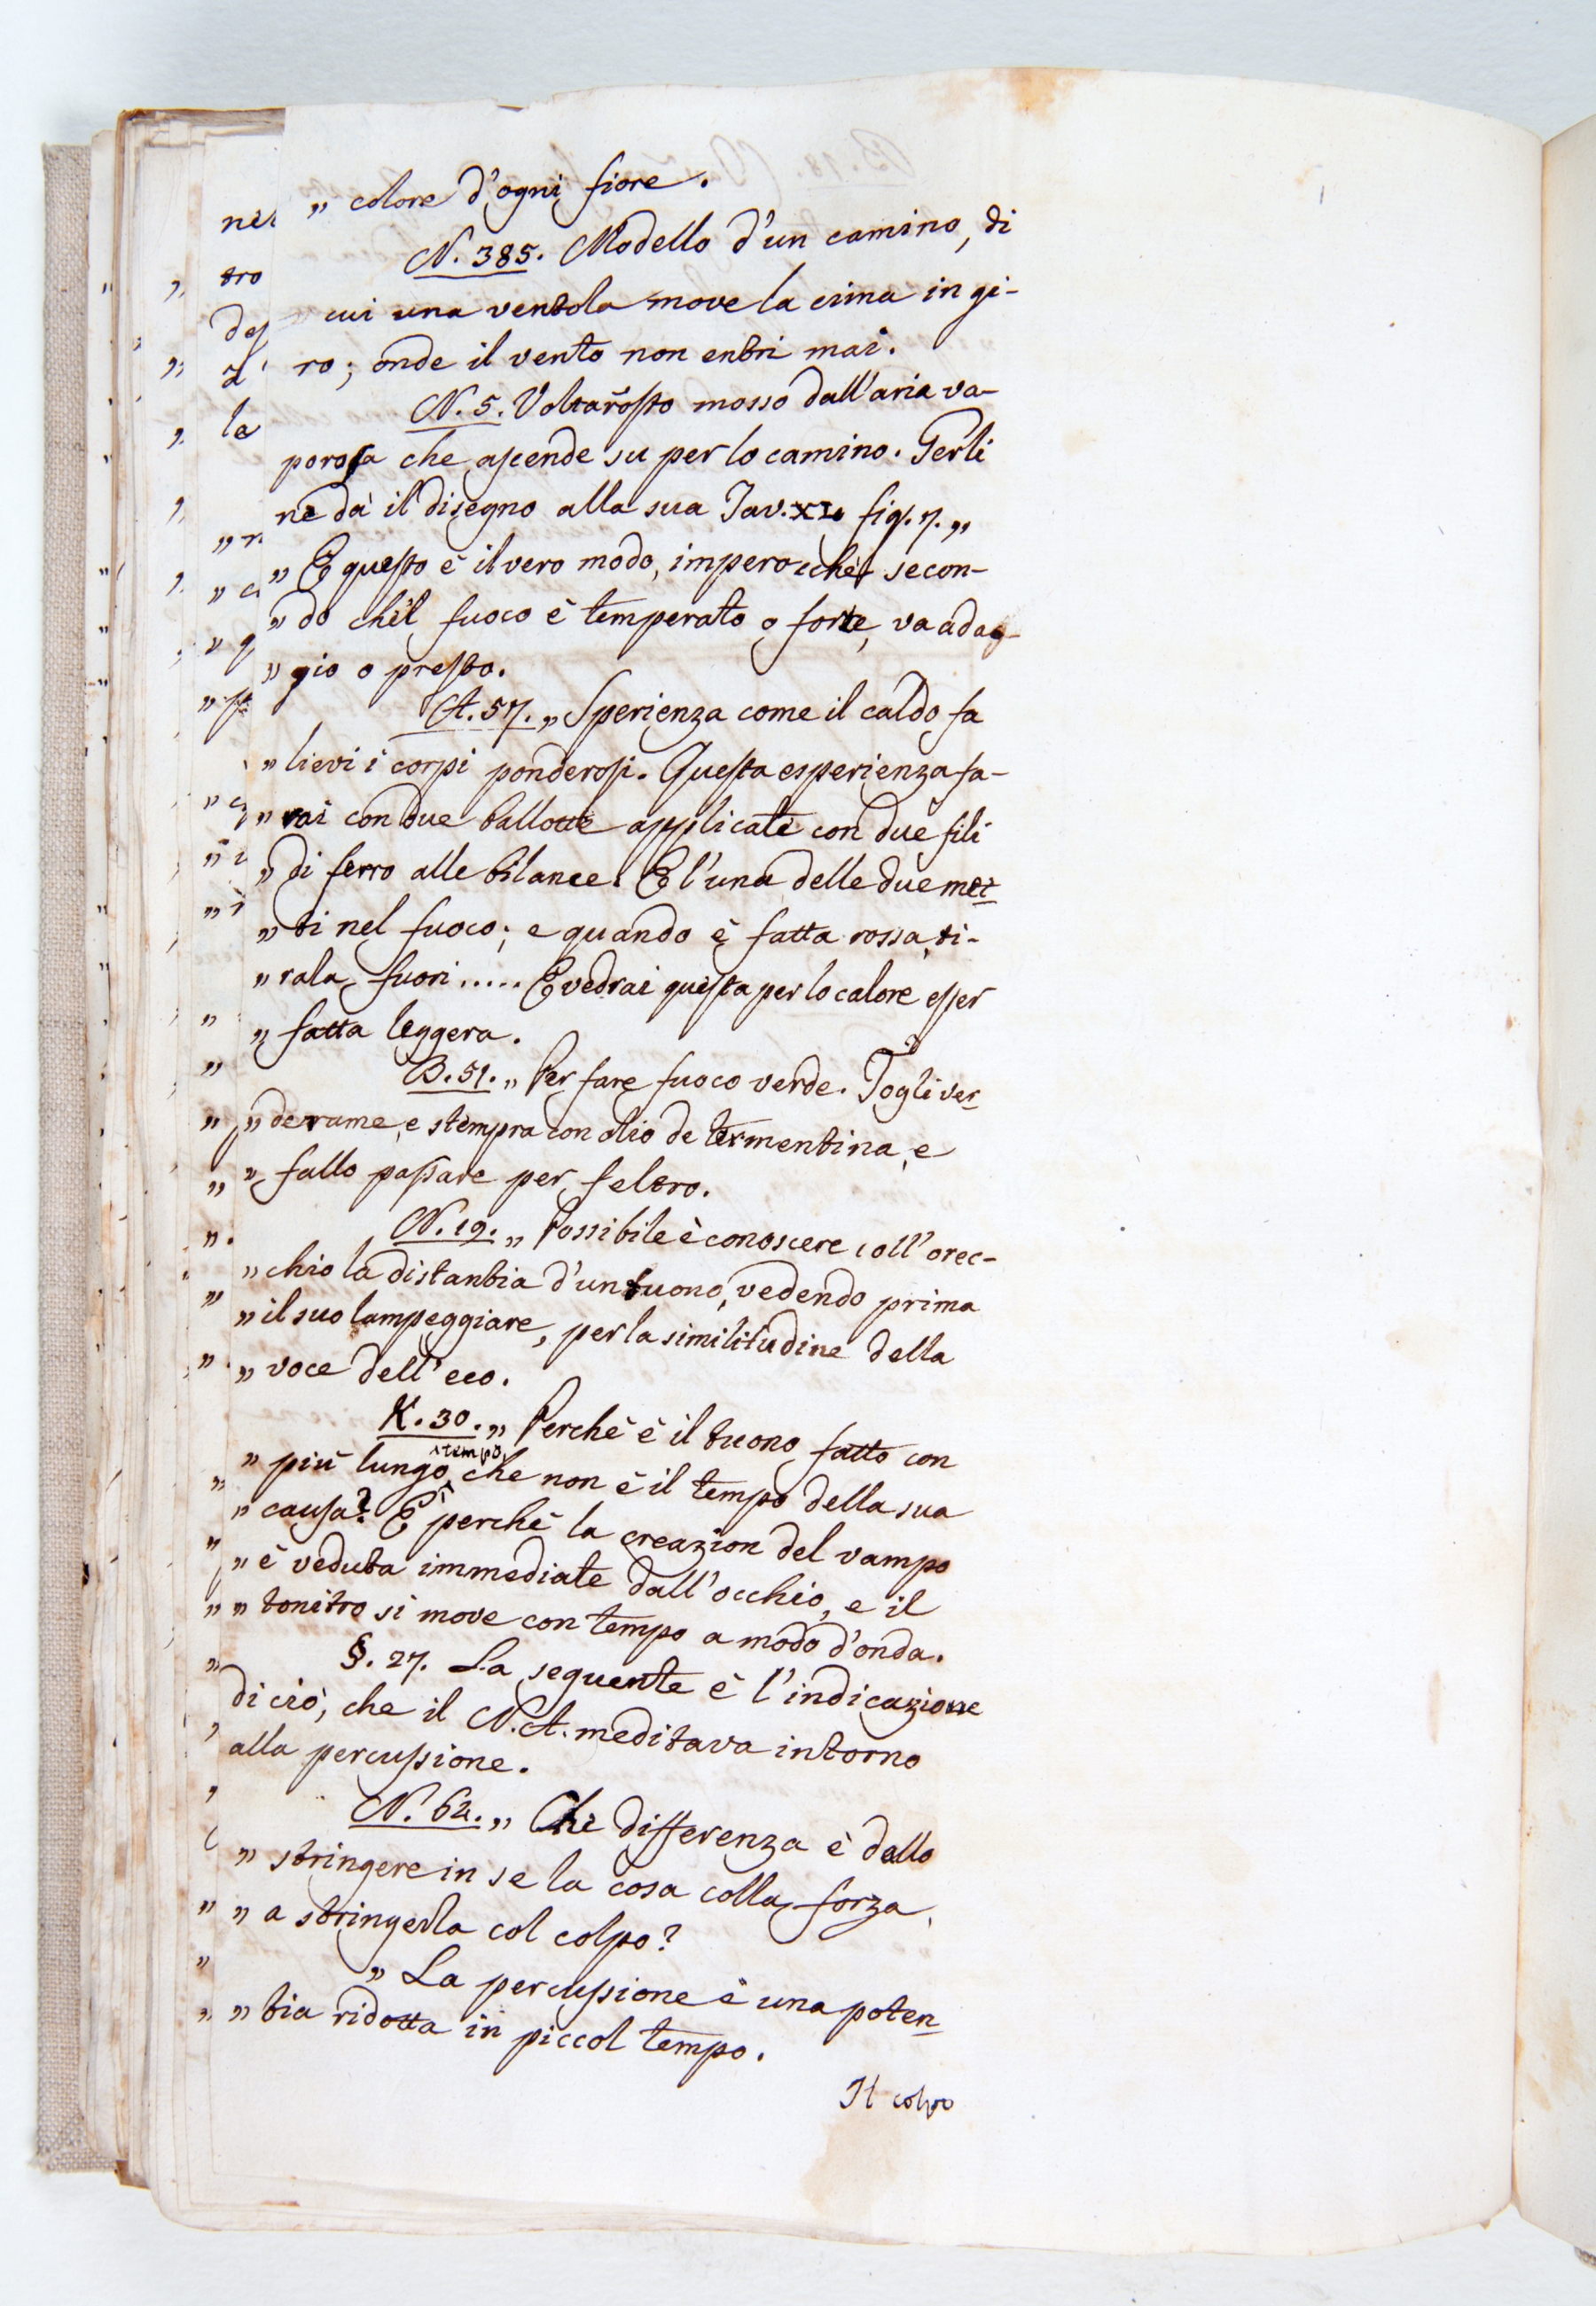 „ colore d'ogni fiore.
N. 385. Modello d'un camino, di
cui una ventola move la cima in gi-
ro; onde il vento non entri mai.
N. 5. Voltarrosto mosso dall'aria va-
porosa che ascende su per lo camino. Gerli
ne dà il disegno alla sua Tav. XL fig. 7. „
„ E questo è il vero modo, imperocchè secon-
„ do che'l fuoco è temperato o forte, va adag-
„ gio o presto.
A. 57. „ Sperienza come il caldo fa
„ lievi i corpi ponderosi. Questa esperienza fa-
„ rai con due ballotte applicate con due fili
„ di ferro alle bilance. E l'una delle due met-
„ ti nel fuoco; e quando è fatta rossa, ti-
„ rala fuori..... E vedrai questa per lo calore esser
„ fatta leggera.
B. 51. „ Per fare fuoco verde. Togli ver-
„ derame, e stempra con olio de termentina, e
„ fallo passare per feltro.
N. 19. „ Possibile è conoscere coll'orec-
„ chio la distantia d'un tuono, vedendo prima
„ il suo lampeggiare, per la similitudine della
„ voce dell'eco.
K. 30. „ Perchè è il tuono fatto con
„ più lungo tempo, che non è il tempo della sua
„ causa? E perchè la creazion del vampo
„ è veduta immediate dall'occhio, e il
„ tonitro si move con tempo a modo d'onda.
§. 27. La seguente è l'indicazione
di ciò, che il N. A. meditava intorno
alla percussione.
N. 62. „ Che differenza è dallo
„ stringere in se la cosa colla forza,
„ a stringerla col colpo?
„ La percussione è una poten-
„ tia ridotta in piccol tempo.
Il colpo